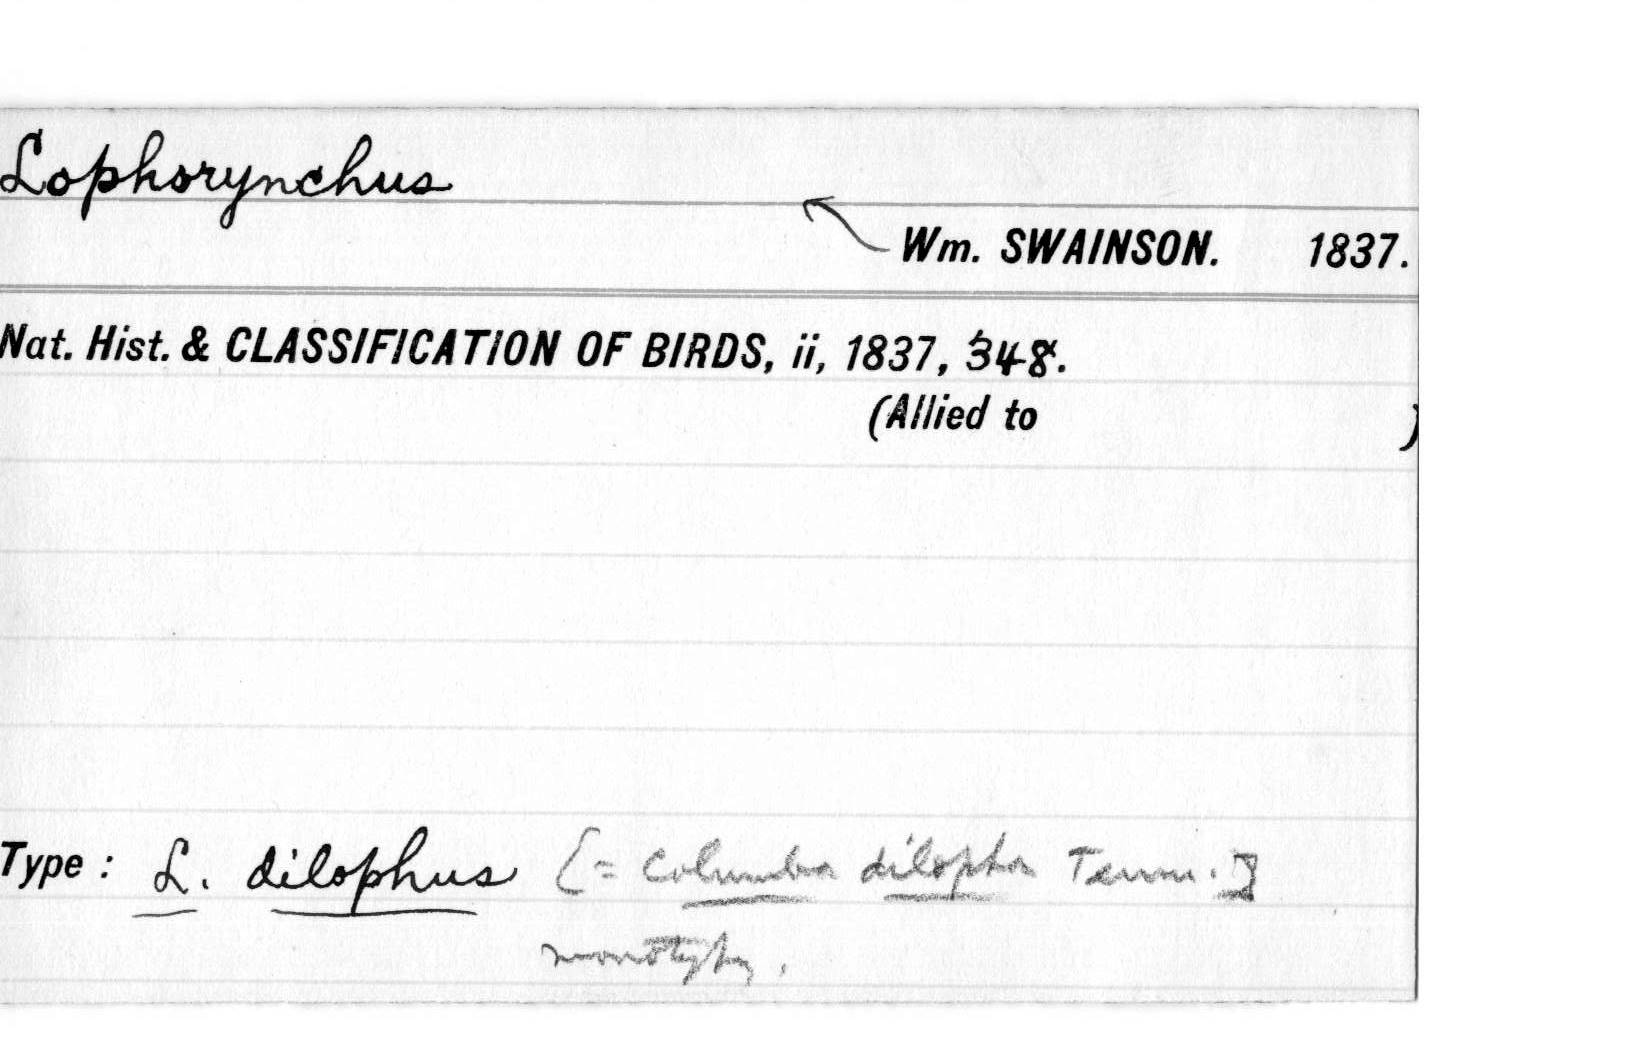 Lophorynchus
Wm. SWAINSON. 1837.
Nat. Hist. & CLASSIFICATION OF BIRDS, ii, 1837, 348.
(Allied to )
Type : L. dilophus [= Columba dilopha Temm.]
monotypy.